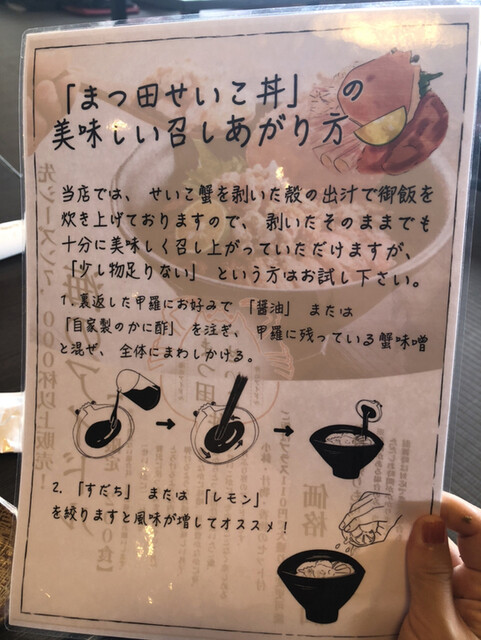 「まつ田せいこ丼」の
美味しい召しあがり方
当店では、せいこ蟹を剥いた殻の出汁で御飯を
炊き上げておりますので、剥いたそのままでも
十分に美味しく召し上がっていただけますが、
「少し物足りない」という方はお試し下さい。
1. 裏返した甲羅にお好みで「醤油」または
「自家製のかに酢」を注ぎ、甲羅に残っている蟹味噌
と混ぜ、全体にまわしかける。
2. 「すだち」または「レモン」
を絞りますと風味が増してオススメ!